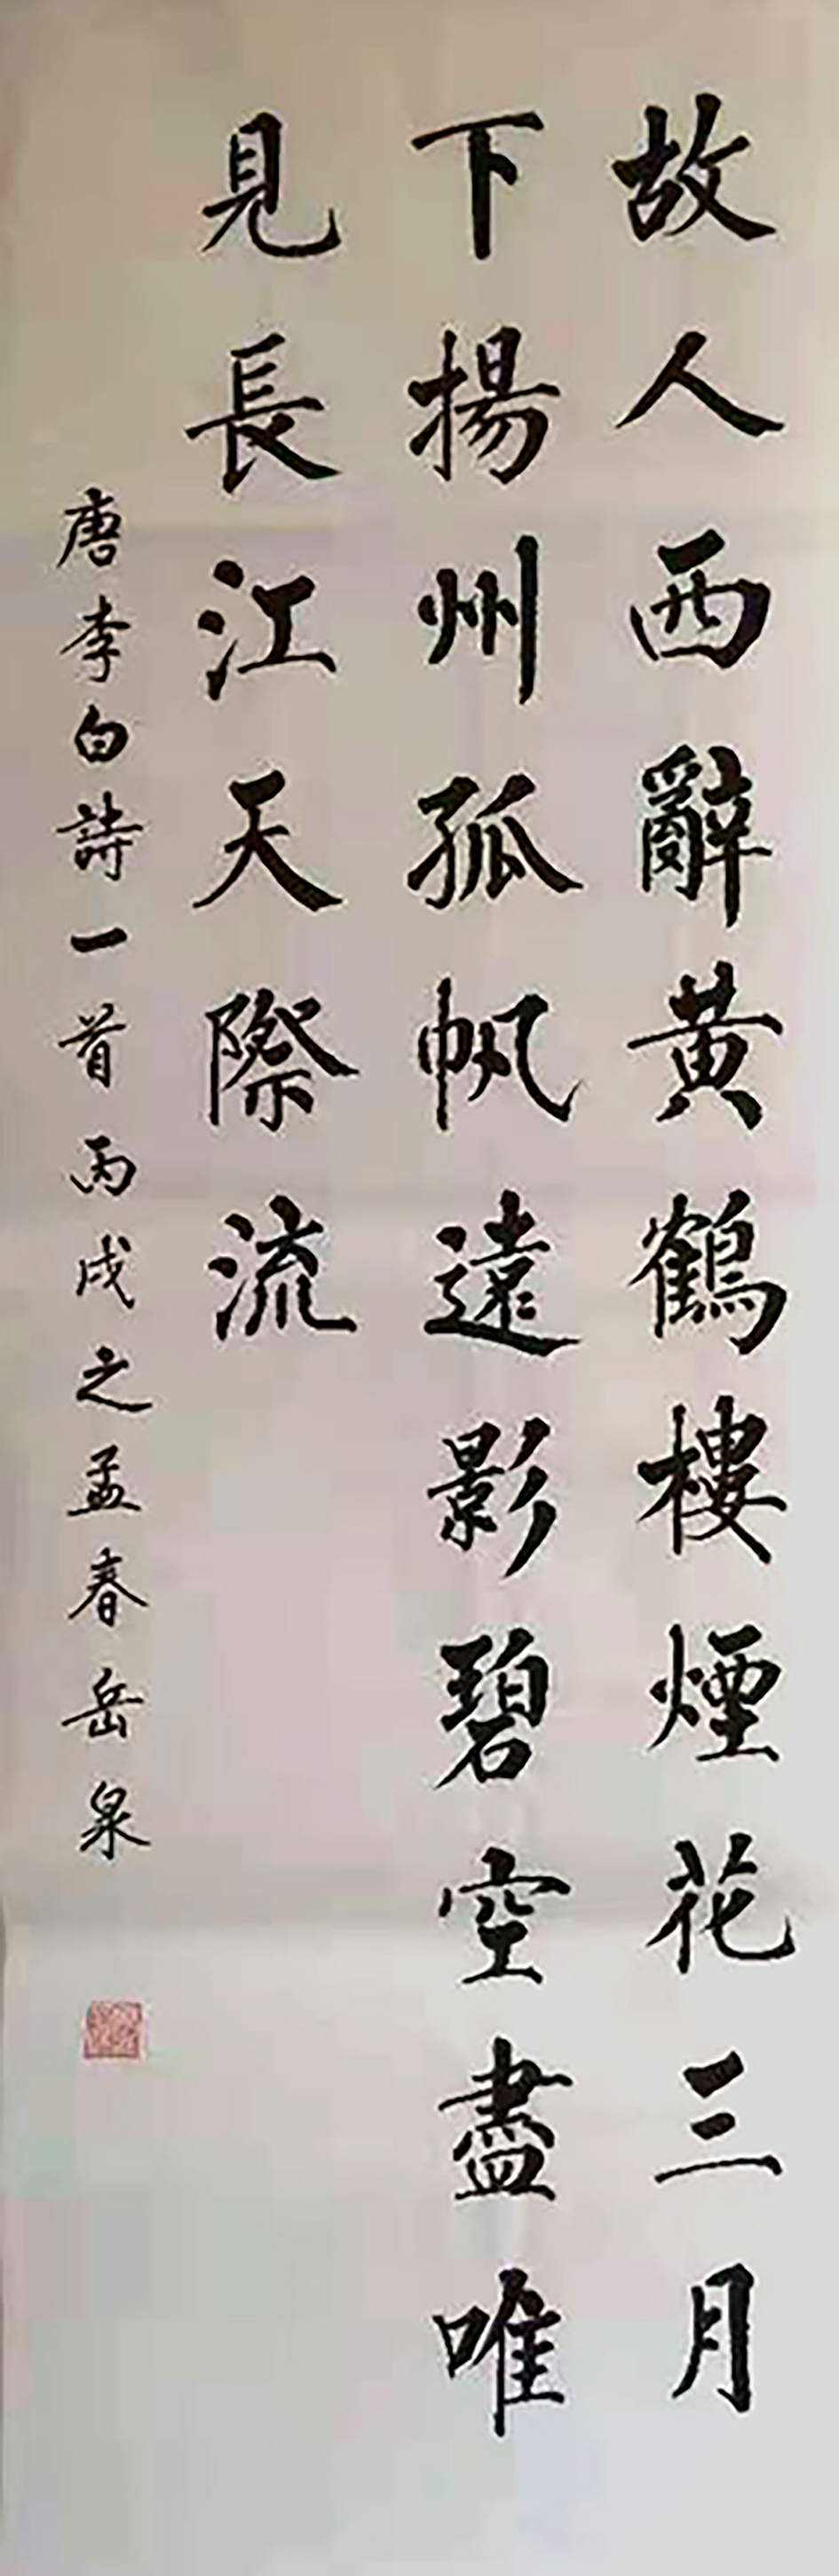 故人西辭黄鶴樓煙花三月
下揚州孤帆遠影碧空盡唯
見長江天際流
唐李白詩一首丙戌之孟春岳泉